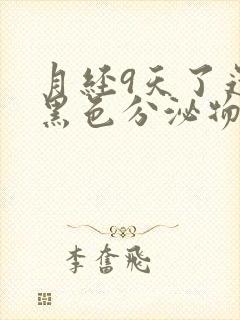 月经9天了还
黑色分泌物
李奋飞